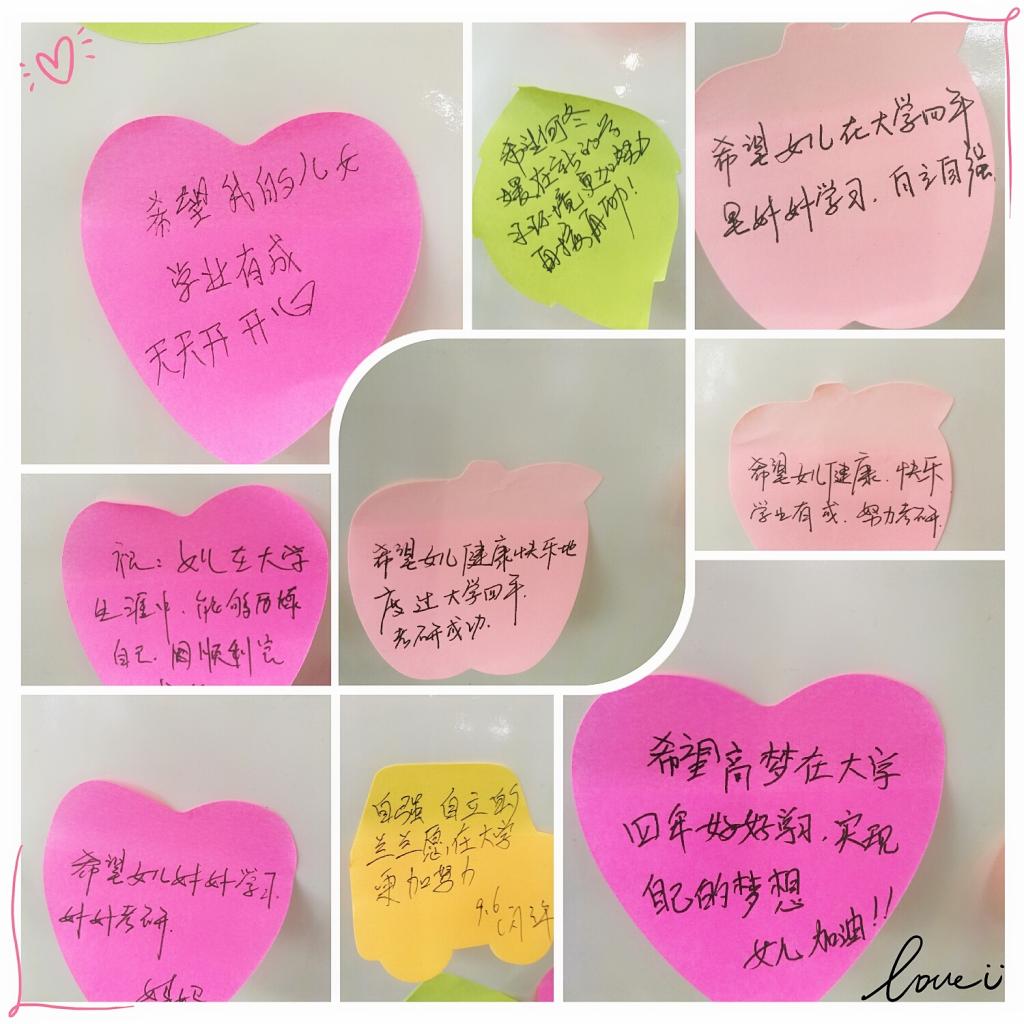 希望我的儿女
学业有成
天天开开心心
希望何冬
媛在新的学
习环境更加努力
再接再厉！
希望女儿在大学四年
里好好学习，自立自强
希望女儿健康，快乐
学业有成，努力考研
祝：女儿在大学
生涯中，能够历练
自己，圆顺利完
希望女儿健康快乐地
度过大学四年，
考研成功.
希望女儿好好学习，
好好考研.
妈妈
自强 自立的
兰兰愿在大学
更加努力
9.6
希望高梦在大学
四年好好学习，实现
自己的梦想
女儿加油！！
Love